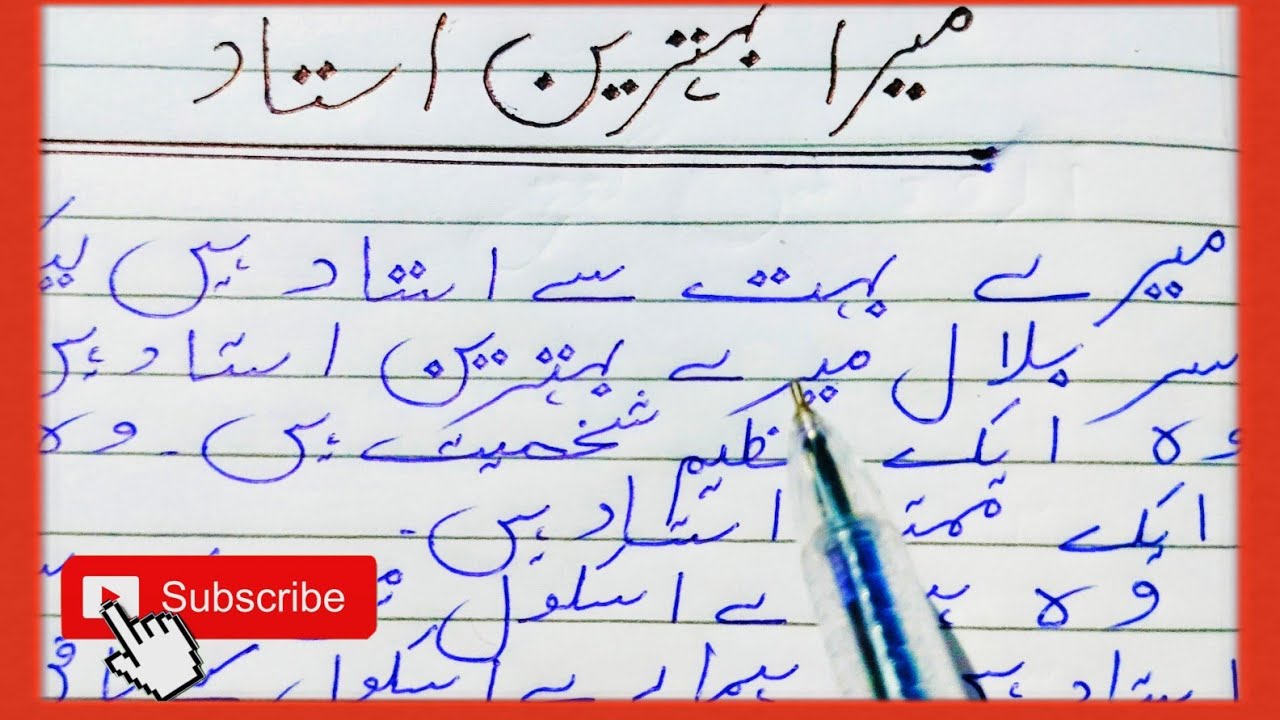 میرا بہترین استاد
میرے بہت سے استاد ہیں
سر بلال میرے بہترین استاد ہیں
وہ ایک عظیم شخصیت ہیں۔ وہ
ایک استاد ہیں۔
وہ اسکول
استاد ہمارے اسکول کے
Subscribe